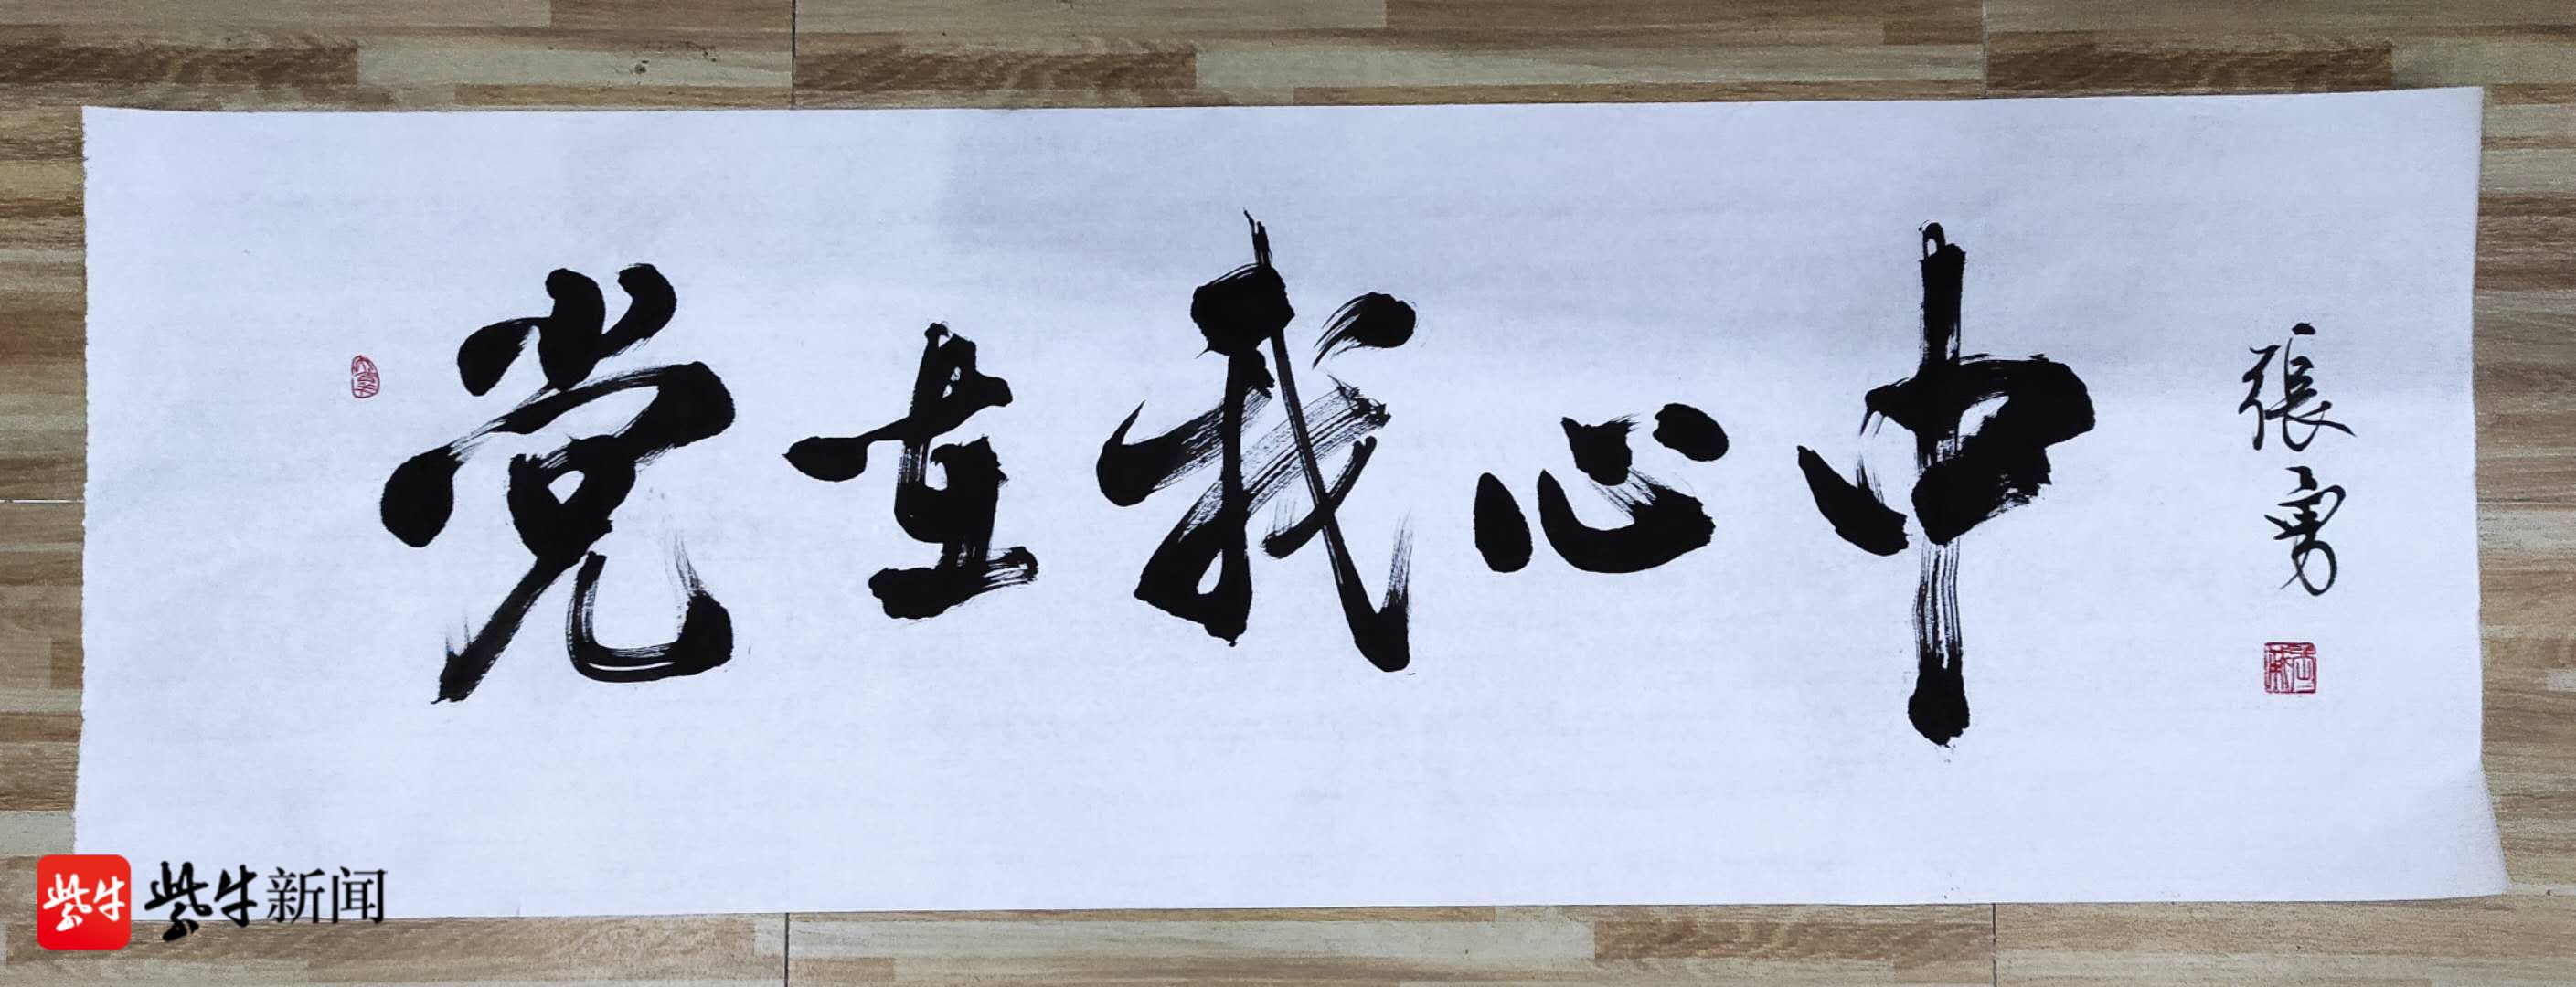 党在我心中
張勇
紫牛
紫牛新闻